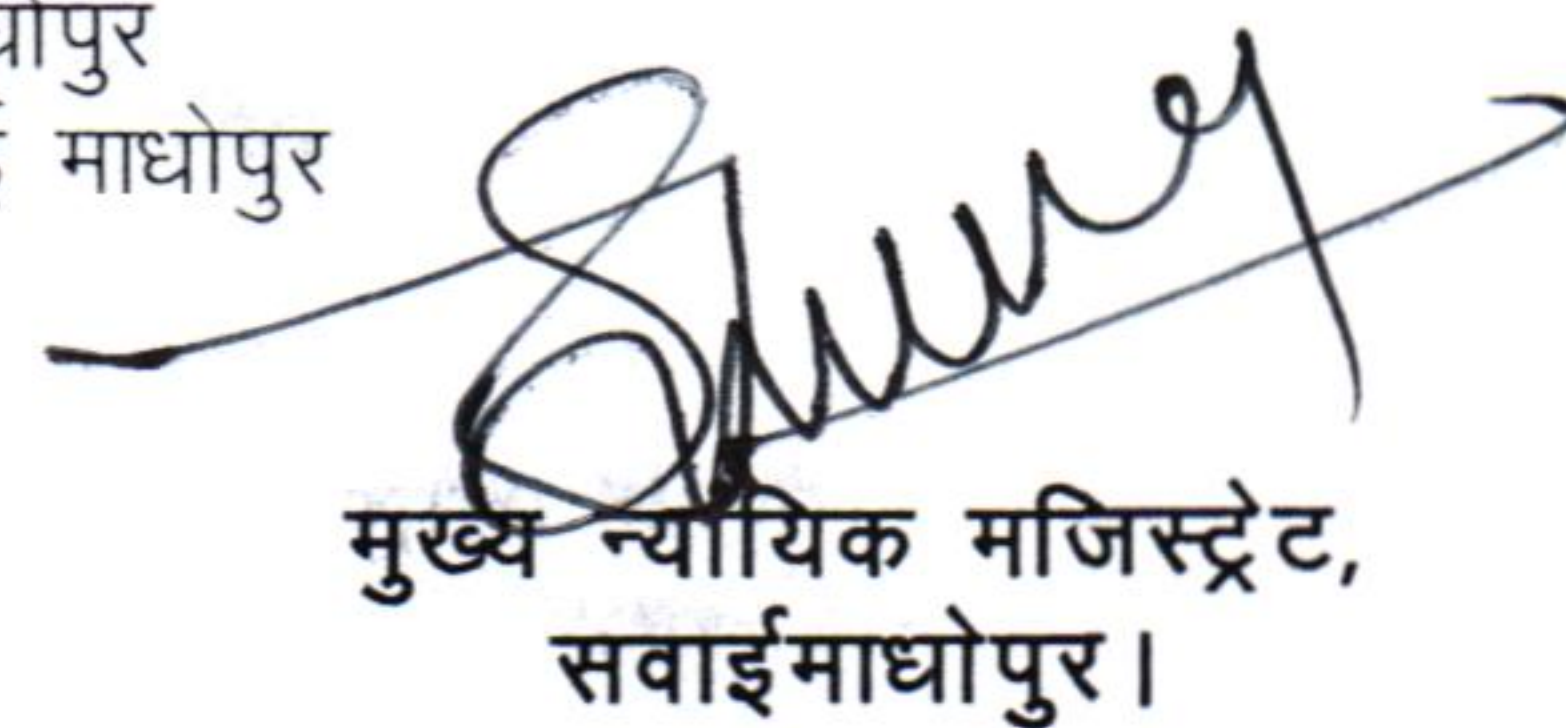 माधोपुर
मुख्य न्यायिक मजिस्ट्रेट,
सवाईमाधोपुर।